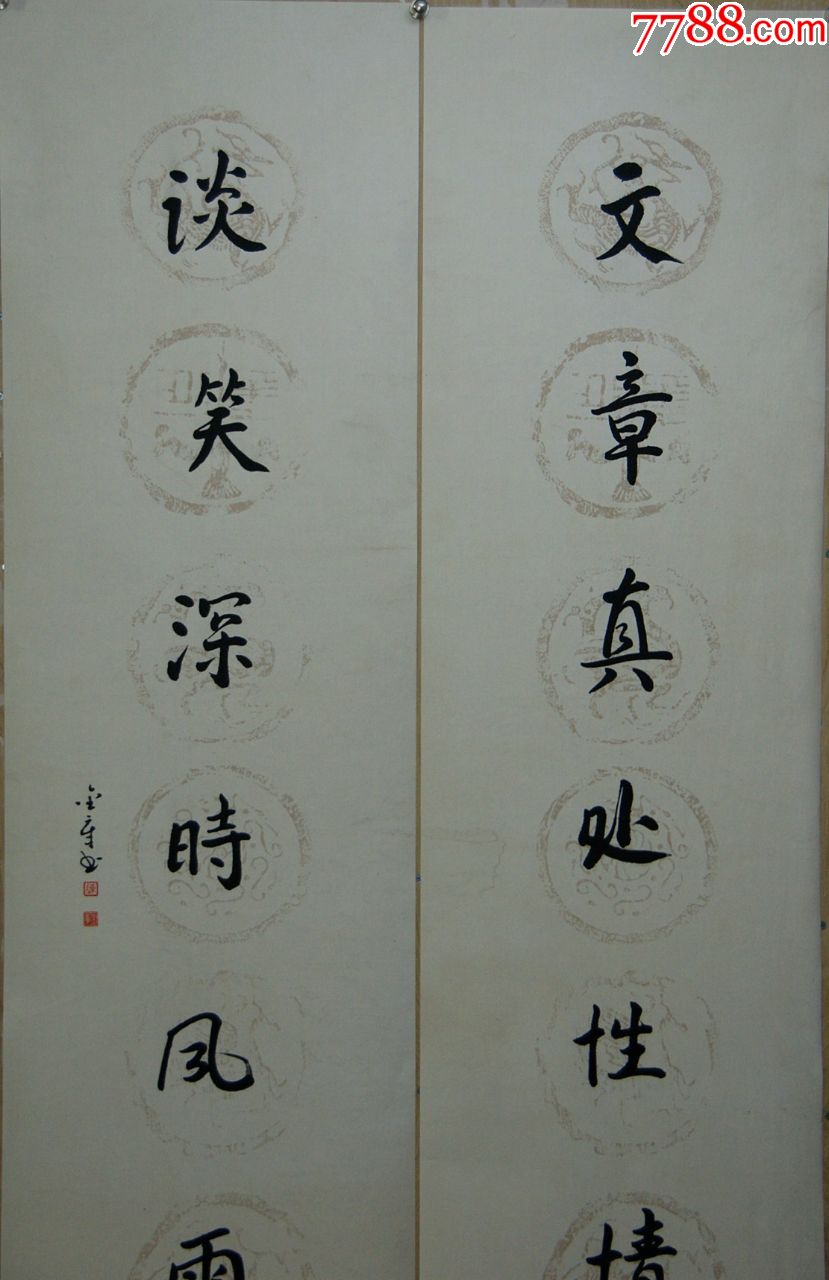 7788.com
文章真处性情
谈笑深時风雨